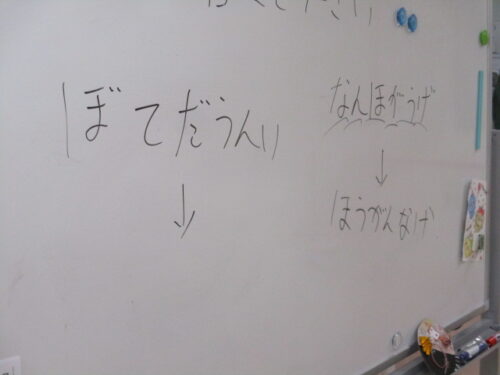 ぼてだうんり
↓
なんほがうげ
↓
ほうがんなげ